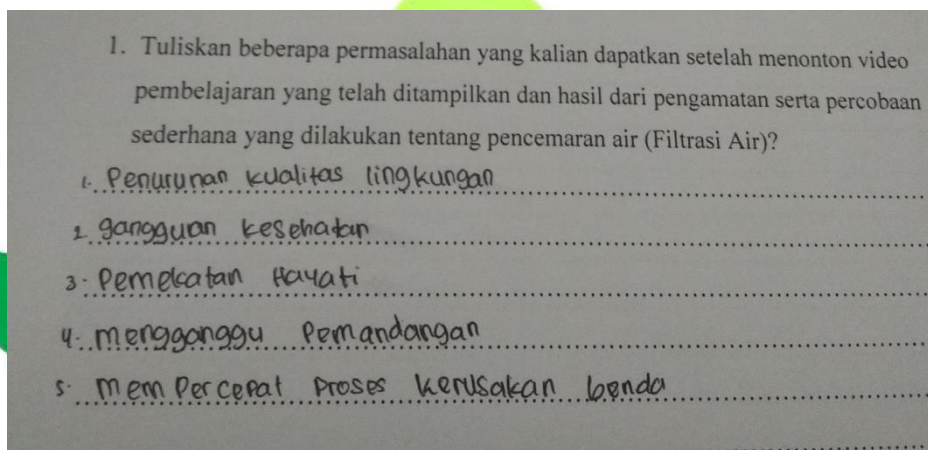 1. Tuliskan beberapa permasalahan yang kalian dapatkan setelah menonton video
pembelajaran yang telah ditampilkan dan hasil dari pengamatan serta percobaan
sederhana yang dilakukan tentang pencemaran air (Filtrasi Air)?
1. Penurunan kualitas lingkungan
2. gangguan kesehatan
3. Pemekatan Hayati
4. mengganggu Pemandangan
5. mem Percepat Proses kerusakan benda